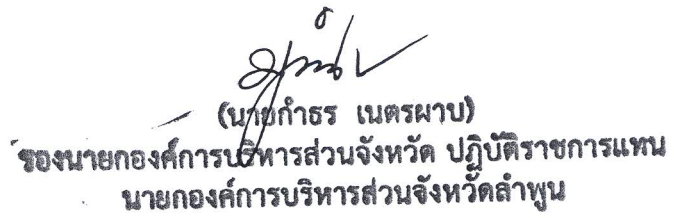 (นายกำธร เนตรผาบ)
รองนายกองค์การบริหารส่วนจังหวัด ปฏิบัติราชการแทน
นายกองค์การบริหารส่วนจังหวัดลำพูน